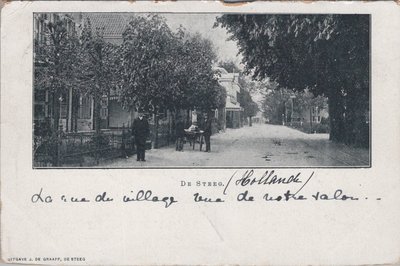 DE STEEG. (Hollande)
La rue du village vue de notre salon...
UITGAVE J. DE GRAAFF, DE STEEG